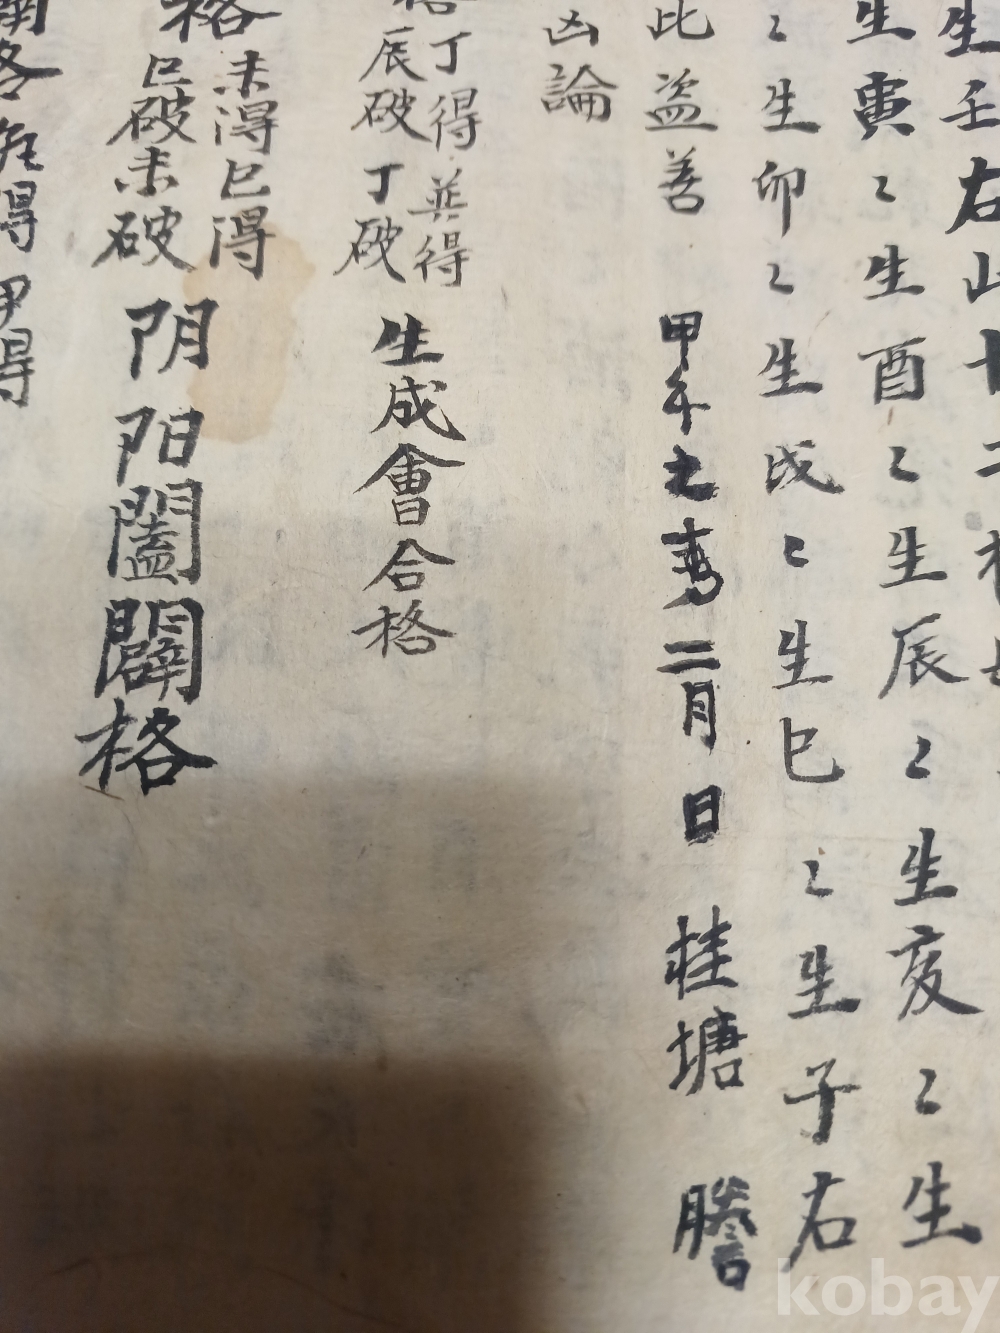 生壬右山十二
生寅〻生酉〻生辰〻生亥〻生
〻生卯〻生戌〻生巳〻生子右
此盗善 甲午之春二月日 桂塘 謄
凶論
格 丁得並得
辰破丁破 生成會合格
格 未得巳得
巳破未破 阴阳闔闢格
得甲得
kobay